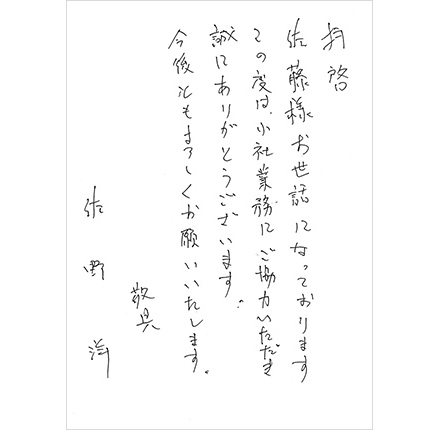 拝啓
佐藤様お世話になっております
この度は、小社業務にご協力いただき
誠にありがとうございます。
今後ともよろしくお願いいたします。
敬具
佐野 洋